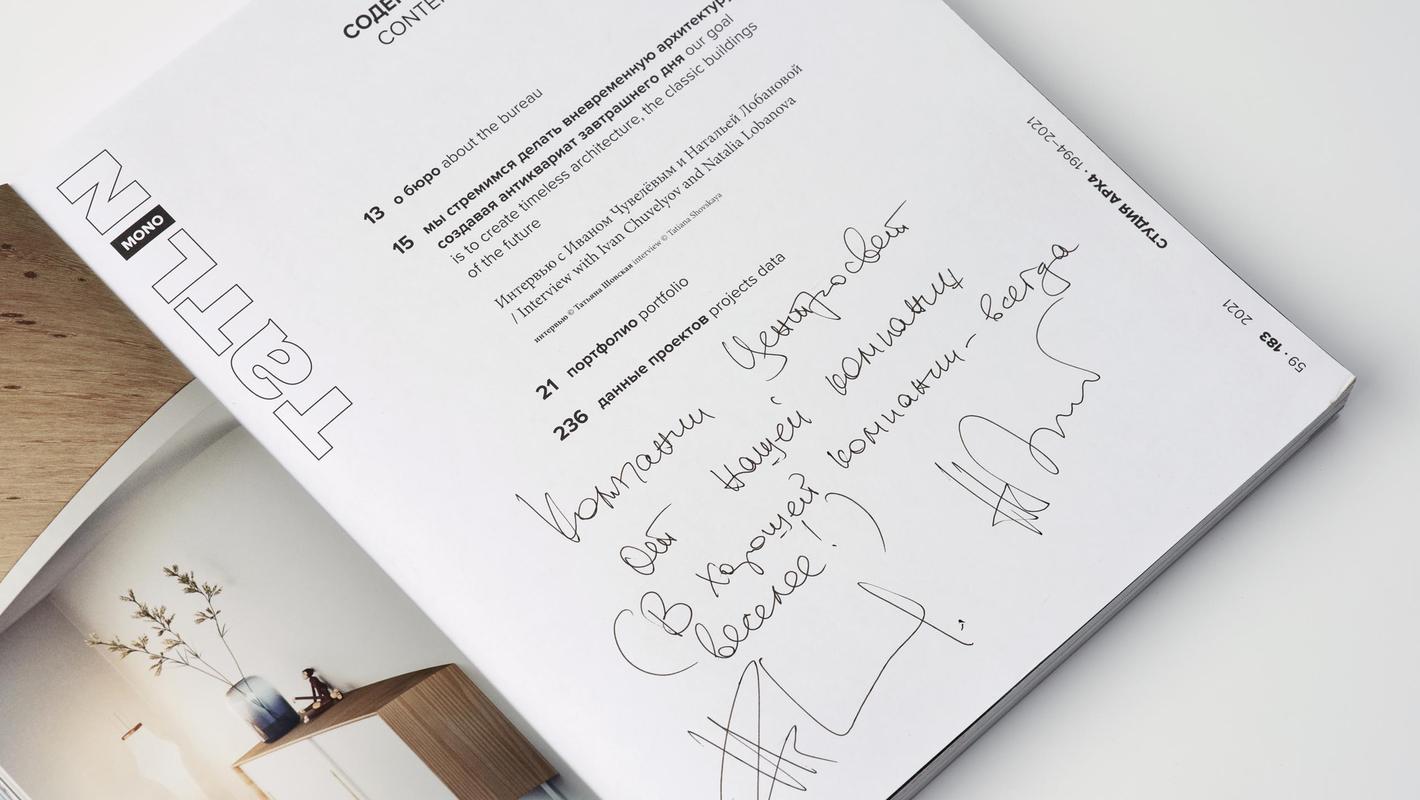 СОДЕ
CONTE
13 о бюро about the bureau
15 мы стремимся делать вневременную архитектуру,
создавая антиквариат завтрашнего дня our goal
is to create timeless architecture, the classic buildings
of the future
Интервью с Иваном Чувелёвым и Натальей Лобановой
/ Interview with Ivan Chuvelyov and Natalia Lobanova
интервью © Татьяна Шовская interview © Tatiana Shovskaya
21 портфолио portfolio
236 данные проектов projects data
TaTLIN
MONO
СТУДИЯ АРХ4 · 1994–2021
59 · 183 2021
Компании Центросвет
от нашей компании
(В хорошей компании - всегда
веселее!)